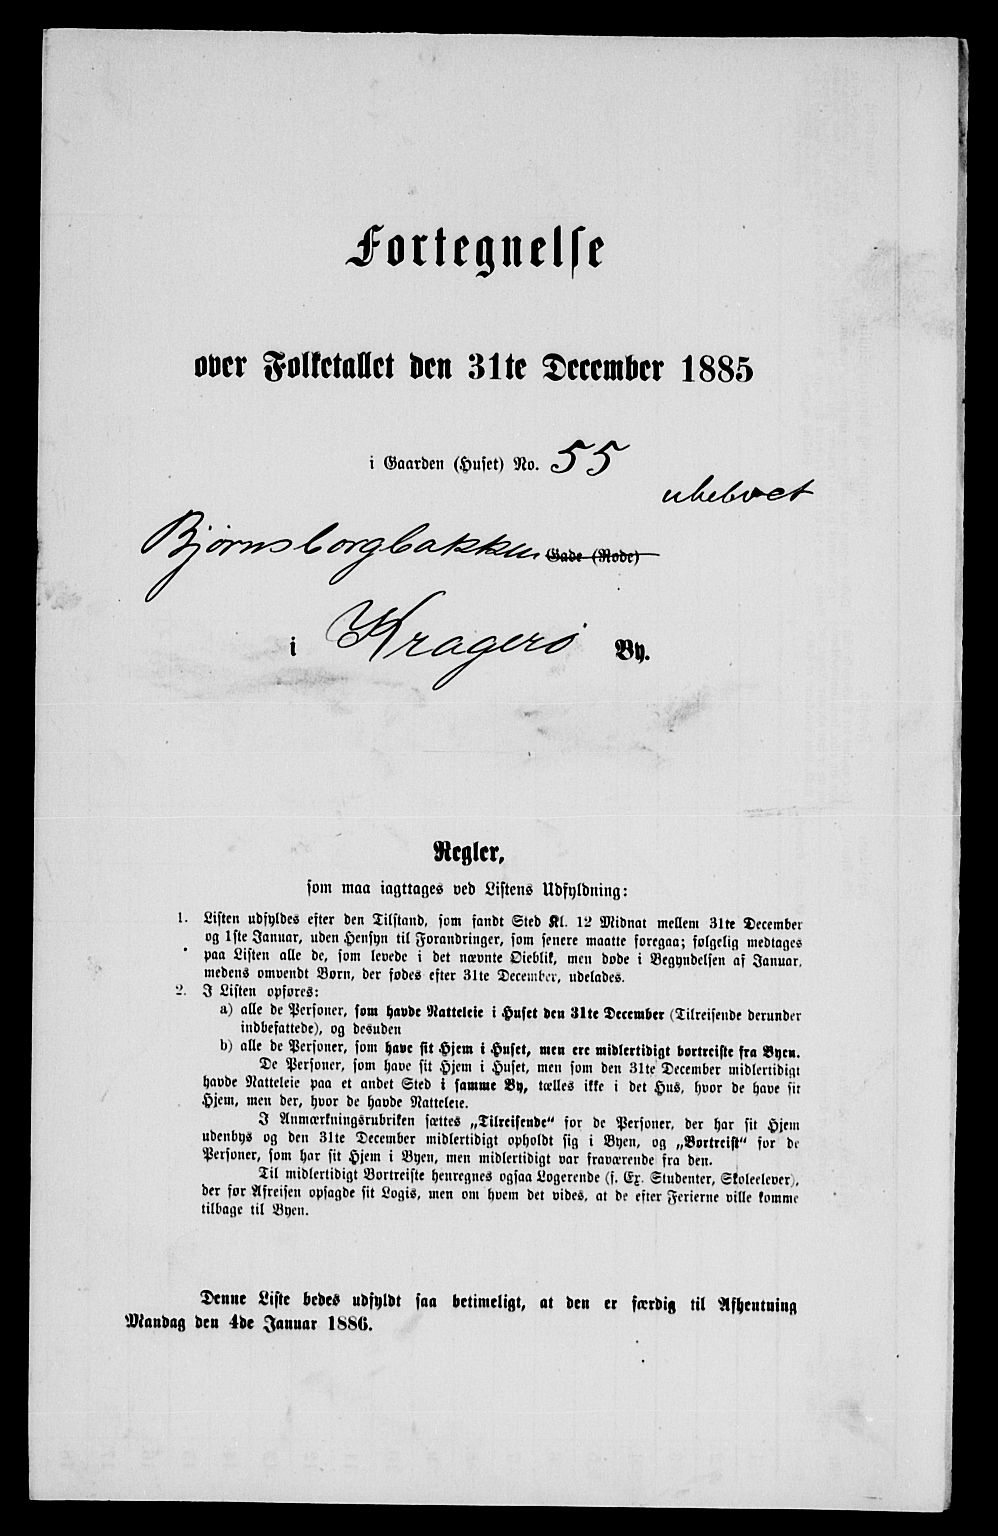 Fortegnelse
over Folketallet den 31te December 1885
i Gaarden (Huset) No. 55
ubeboet
Bjørnsborgbakken Gade (Rode)
i Kragerö By.
Regler,
som maa iagttages ved Listens Udfyldning:
1. Listen udfyldes efter den Tilstand, som fandt Sted Kl. 12 Midnat mellem 31te December
og 1ste Januar, uden Hensyn til Forandringer, som senere maatte foregaa; følgelig medtages
paa Listen alle de, som levede i det nævnte Øieblik, men døde i Begyndelsen af Januar,
medens omvendt Børn, der fødes efter 31te December, udelades.
2. I Listen opføres:
a) alle de Personer, som havde Natteleie i Huset den 31te December (Tilreisende derunder
indbefattede), og desuden
b) alle de Personer, som have sit Hjem i Huset, men ere midlertidigt bortreiste fra Byen.
De Personer, som have sit Hjem i Huset, men som den 31te December midlertidigt
havde Natteleie paa et andet Sted i samme By, tælles ikke i det Hus, hvor de have sit
Hjem, men der, hvor de havde Natteleie.
I Anmærkningsrubriken sættes „Tilreisende“ for de Personer, der har sit Hjem
udenbys og den 31te December midlertidigt opholdt sig i Byen, og „Bortreist“ for de
Personer, som har sit Hjem i Byen, men midlertidigt var fraværende fra den.
Til midlertidigt Bortreiste henregnes ogsaa Logerende (f. Ex. Studenter, Skoleelever),
der før Afreisen opsagde sit Logis, men om hvem det vides, at de efter Ferierne ville komme
tilbage til Byen.
Denne Liste bedes udfyldt saa betimeligt, at den er færdig til Afhentning
Mandag den 4de Januar 1886.